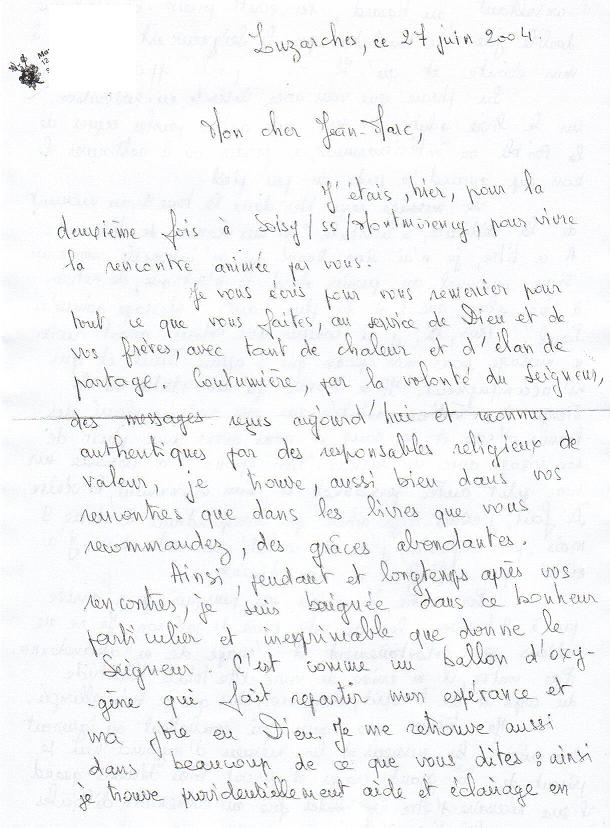 Luzarches, ce 27 juin 2004.
Mon cher Jean-Marc,
J'étais, hier, pour la
deuxième fois à Soisy/ss/Montmorency, pour vivre
la rencontre animée par vous.
Je vous écris pour vous remercier pour
tout ce que vous faites, au service de Dieu et de
vos frères, avec tant de chaleur et d'élan de
partage. Coutumière, par la volonté du Seigneur,
des messages reçus aujourd'hui et reconnus
authentiques par des responsables religieux de
valeur, je trouve, aussi bien dans vos
rencontres que dans les livres que vous
recommandez, des grâces abondantes.
Ainsi pendant et longtemps après vos
rencontres, je suis baignée dans ce bonheur
particulier et inexprimable que donne le
Seigneur. C'est comme un ballon d'oxy-
-gène qui fait repartir mon espérance et
ma joie en Dieu. Je me retrouve aussi
dans beaucoup de ce que vous dites : ainsi
je trouve providentiellement aide et éclairage en